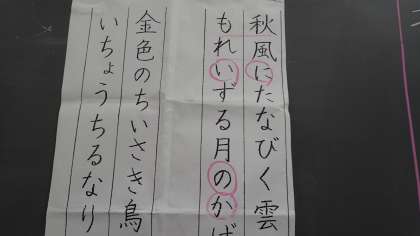 秋風にたなびく雲
もれいずる月のかげ
金色のちいさき鳥
いちょうちるなり